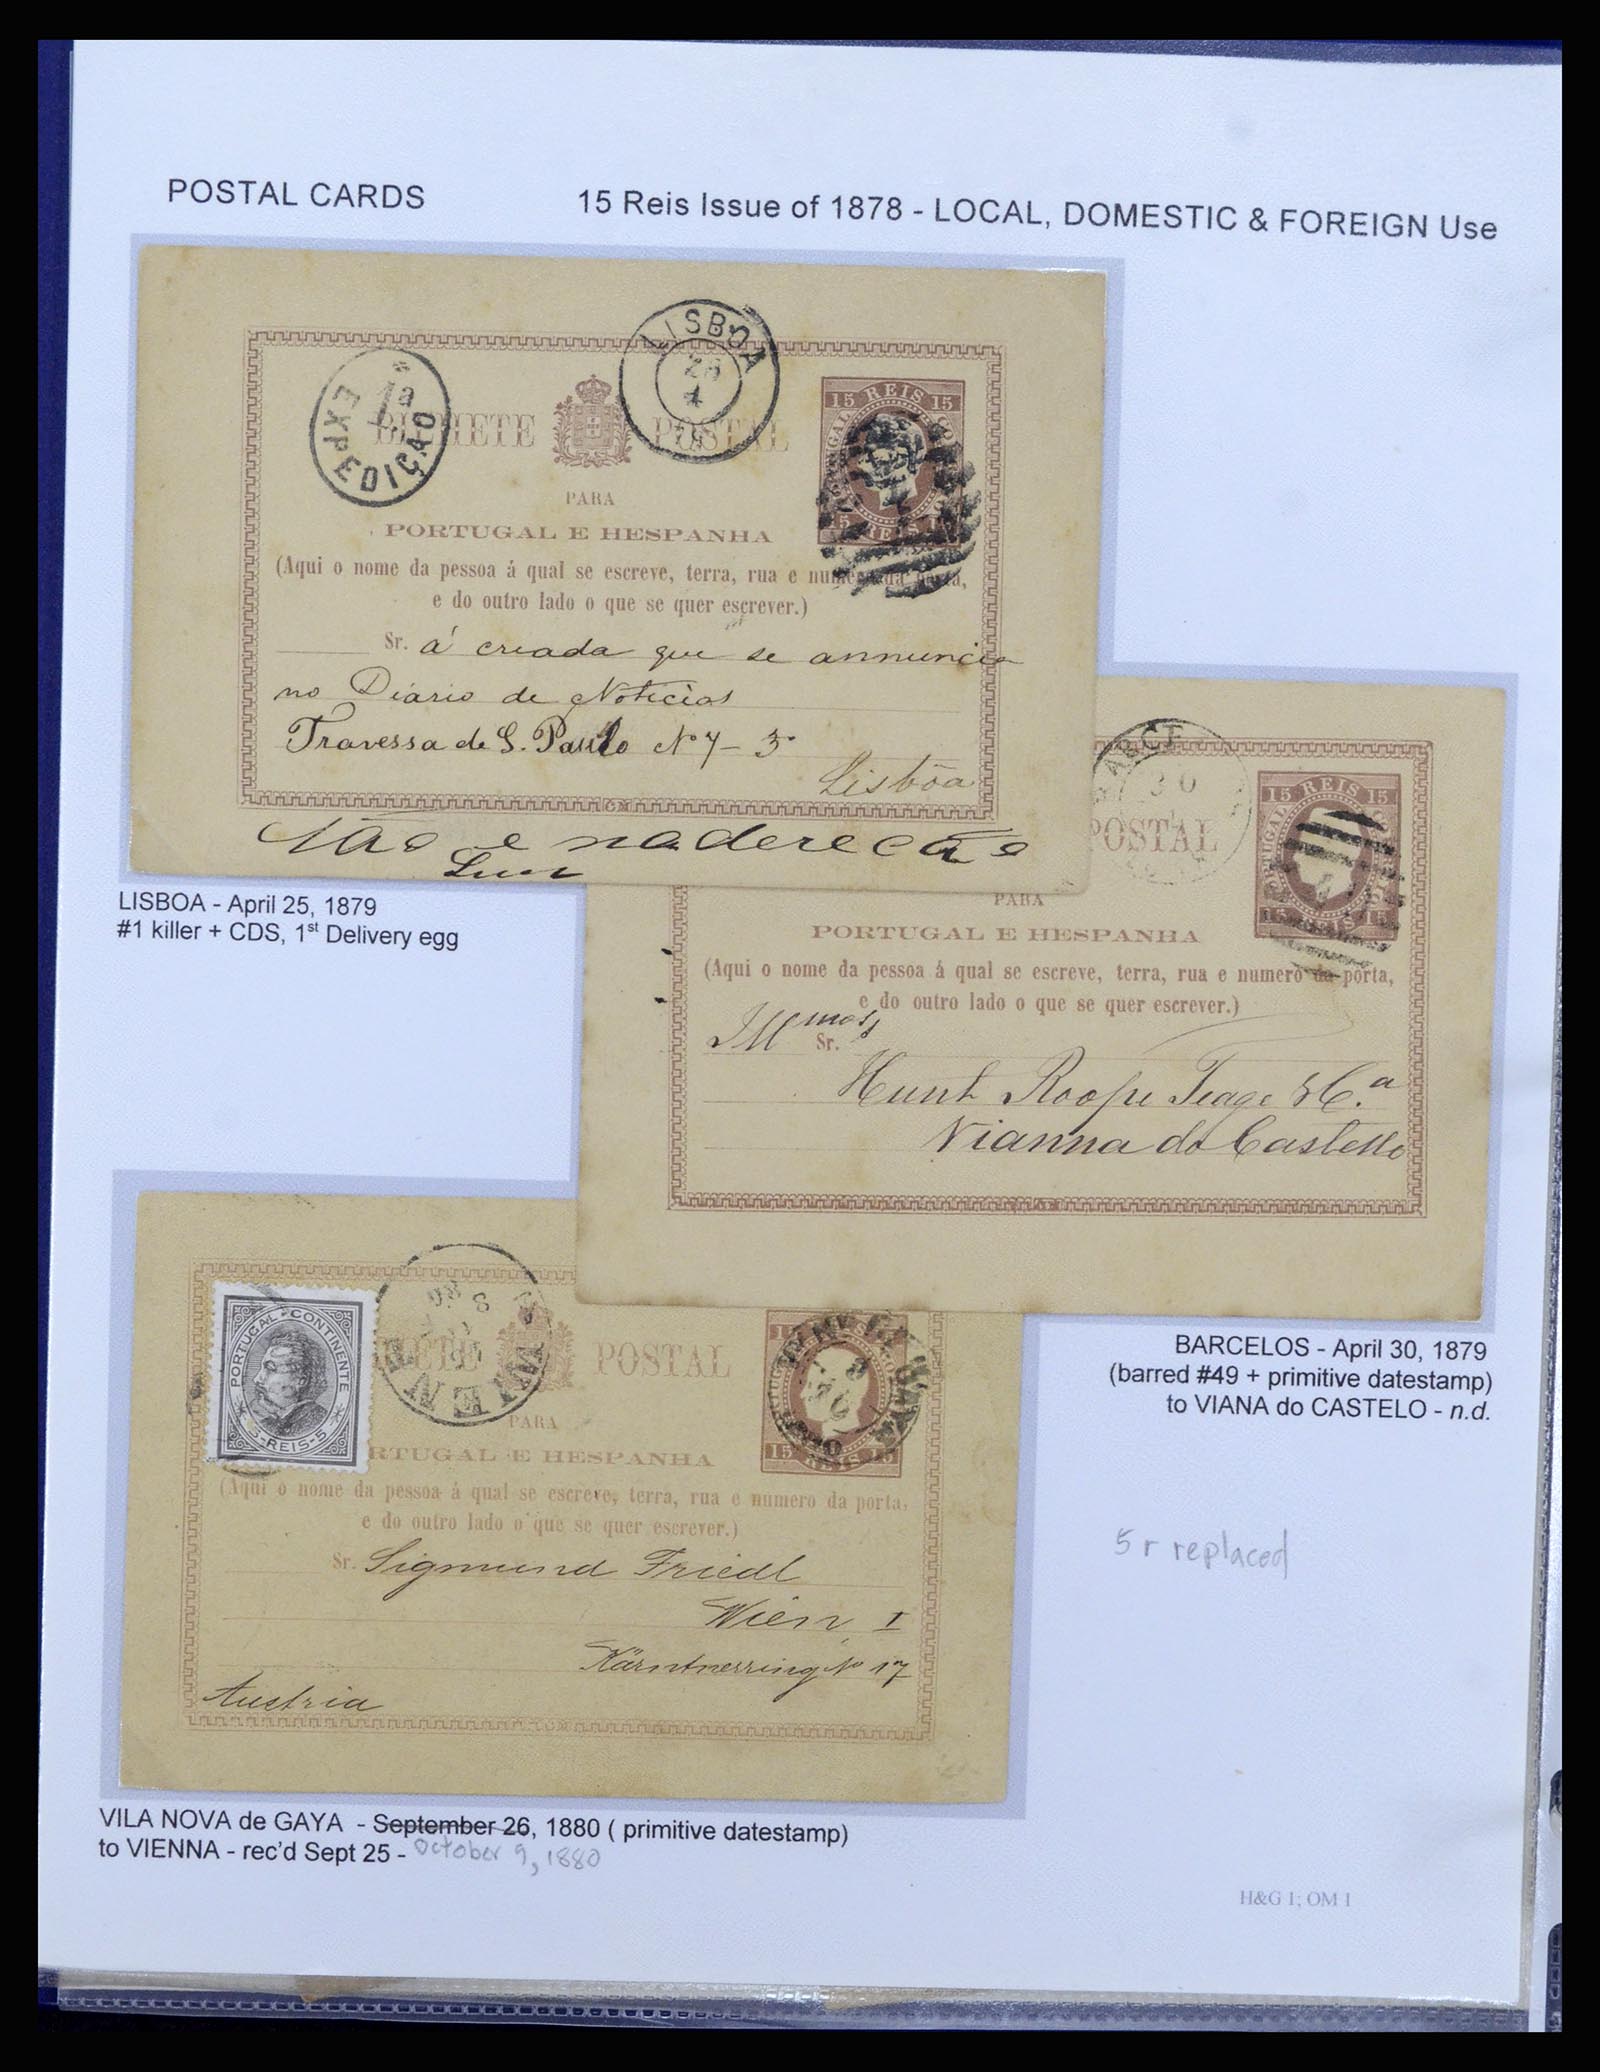 POSTAL CARDS
15 Reis Issue of 1878 - LOCAL, DOMESTIC & FOREIGN Use
EXPEDIÇÃO
1a
LISBOA
4
BILHETE POSTAL
15 REIS 15
15 REIS 15
PARA
PORTUGAL E HESPANHA
(Aqui o nome da pessoa á qual se escreve, terra, rua e numero da porta,
e do outro lado o que se quer escrever.)
Sr. á criada que se annuncia
no Diario de Noticias
Travessa de S. Paulo Nº 7 - 3º
Lisbõa
Não é
LISBOA - April 25, 1879
#1 killer + CDS, 1st Delivery egg
BARCE
30
POSTAL
15 REIS 15
PARA
PORTUGAL E HESPANHA
(Aqui o nome da pessoa á qual se escreve, terra, rua e numero da porta,
e do outro lado o que se quer escrever.)
Illmos Sr.
Hunt Roope Teage & C.a
Vianna do Castello
BARCELOS - April 30, 1879
(barred #49 + primitive datestamp)
to VIANA do CASTELO - n.d.
PORTUGAL CONTINENTE
5-REIS-5
WIEN
POSTAL
15 REIS 15
PARA
RTUGAL E HESPANHA
(Aqui o nome da pessoa á qual se escreve, terra, rua e numero da porta,
e do outro lado o que se quer escrever.)
Sr. Sigmund Friedl
Wien, I
Kärntnerring No 17
Austria
5 r replaced
VILA NOVA de GAYA - September 26, 1880 ( primitive datestamp)
to VIENNA - rec'd Sept 25 - October 9, 1880
H&G 1; OM 1